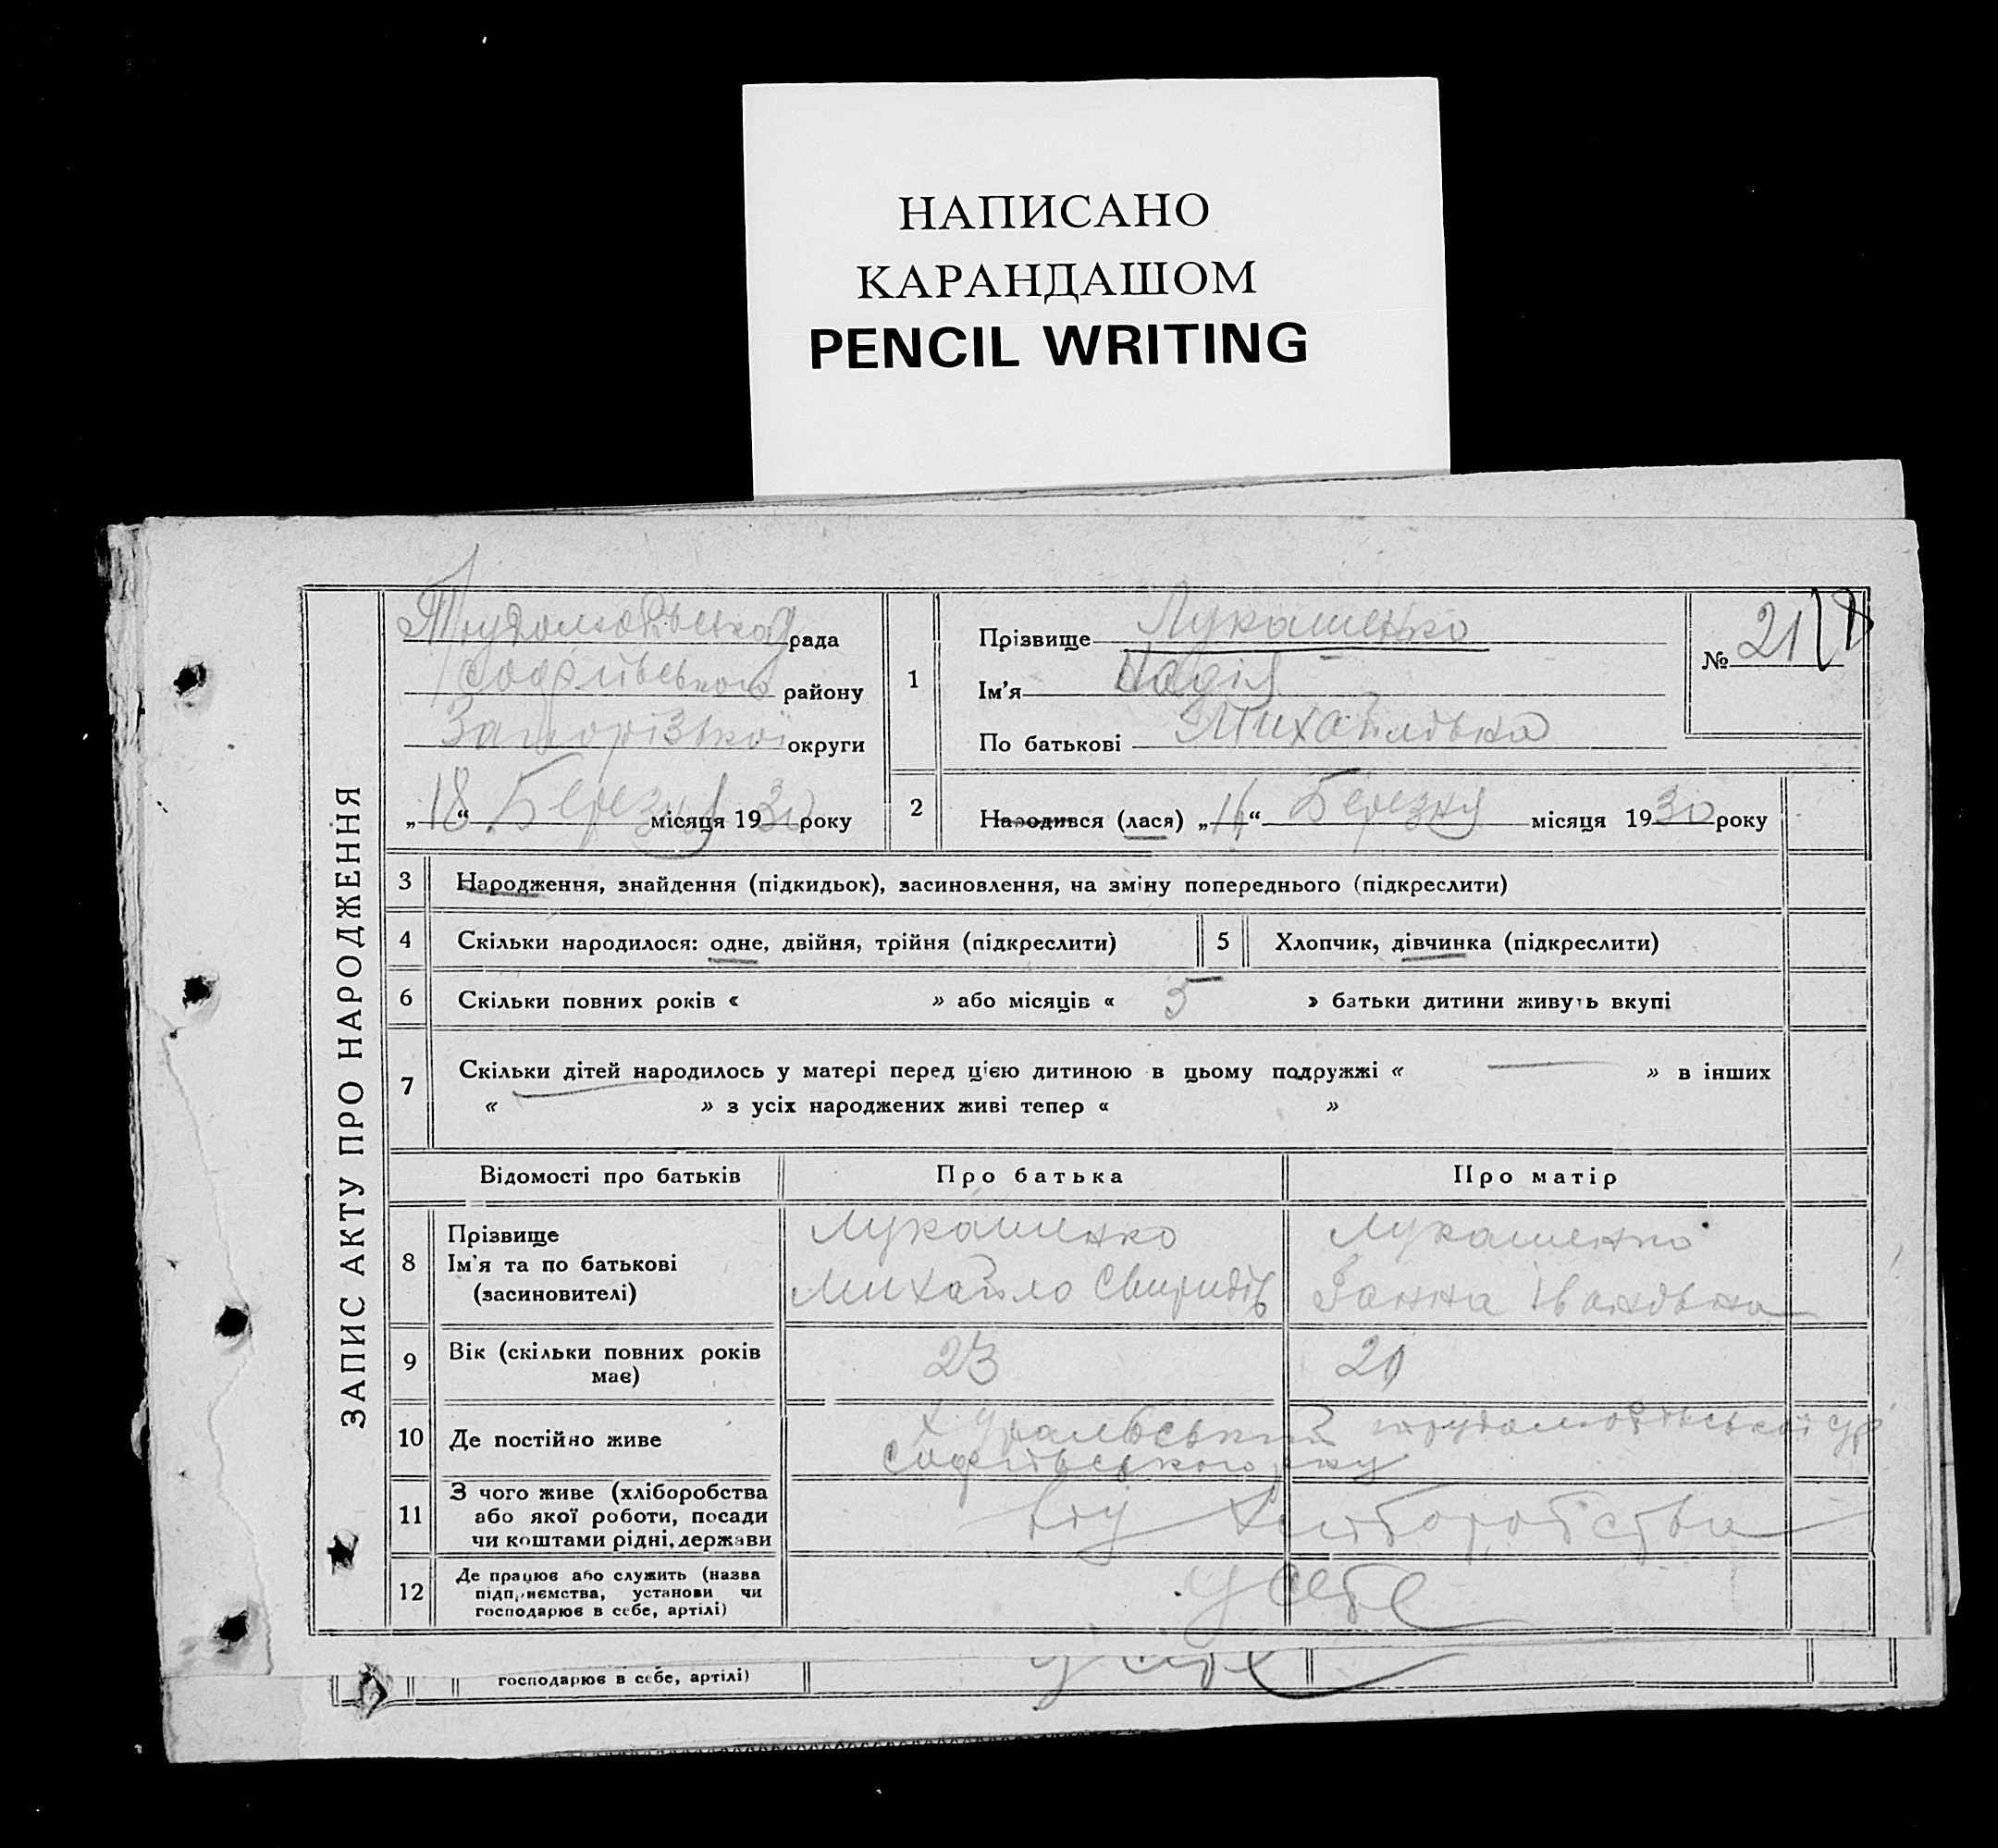 НАПИСАНО
КАРАНДАШОМ
PENCIL WRITING
ЗАПИС АКТУ ПРО НАРОДЖЕННЯ
рада
Софіївського району
Запорізької округи
„18“ Березня місяця 1930 року
1
Прізвище Лукашенко
Ім’я Надія
По батькові Михайлівна
№ 21
2
Народився (лася) „ “ Березня місяця 1930 року
3 Народження, знайдення (підкидьок), засиновлення, на зміну попереднього (підкреслити)
4 Скільки народилося: одне, двійня, трійня (підкреслити) 5 Хлопчик, дівчинка (підкреслити)
6 Скільки повних років « » або місяців « 5 » батьки дитини живуть вкупі
7 Скільки дітей народилось у матері перед цією дитиною в цьому подружжі « — » в інших
« — » з усіх народжених живі тепер « »
Відомості про батьків Про батька Про матір
8 Прізвище
Ім’я та по батькові
(засиновителі)
Лукашенко
Михайло Свиридів
Лукашенко
Ганна Іванівна
9 Вік (скільки повних років
має)
23
20
10 Де постійно живе
х. Уральський
Софіївського р-ну
11 З чого живе (хліборобства
або якої роботи, посади
чи коштами рідні, держави
Хліборобства
12 Де працює або служить (назва
підприємства, установи чи
господарює в себе, артілі)
у себе
господарює в себе, артілі)
у себе